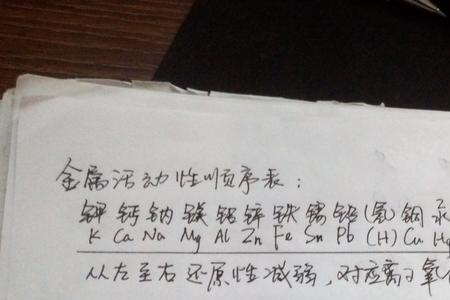 金属活动性顺序表:
钾钙钠镁铝锌铁锡铅(氢)铜汞
K Ca Na Mg Al Zn Fe Sn Pb (H) Cu Hg
从左至右还原性减弱,对应离子氧化